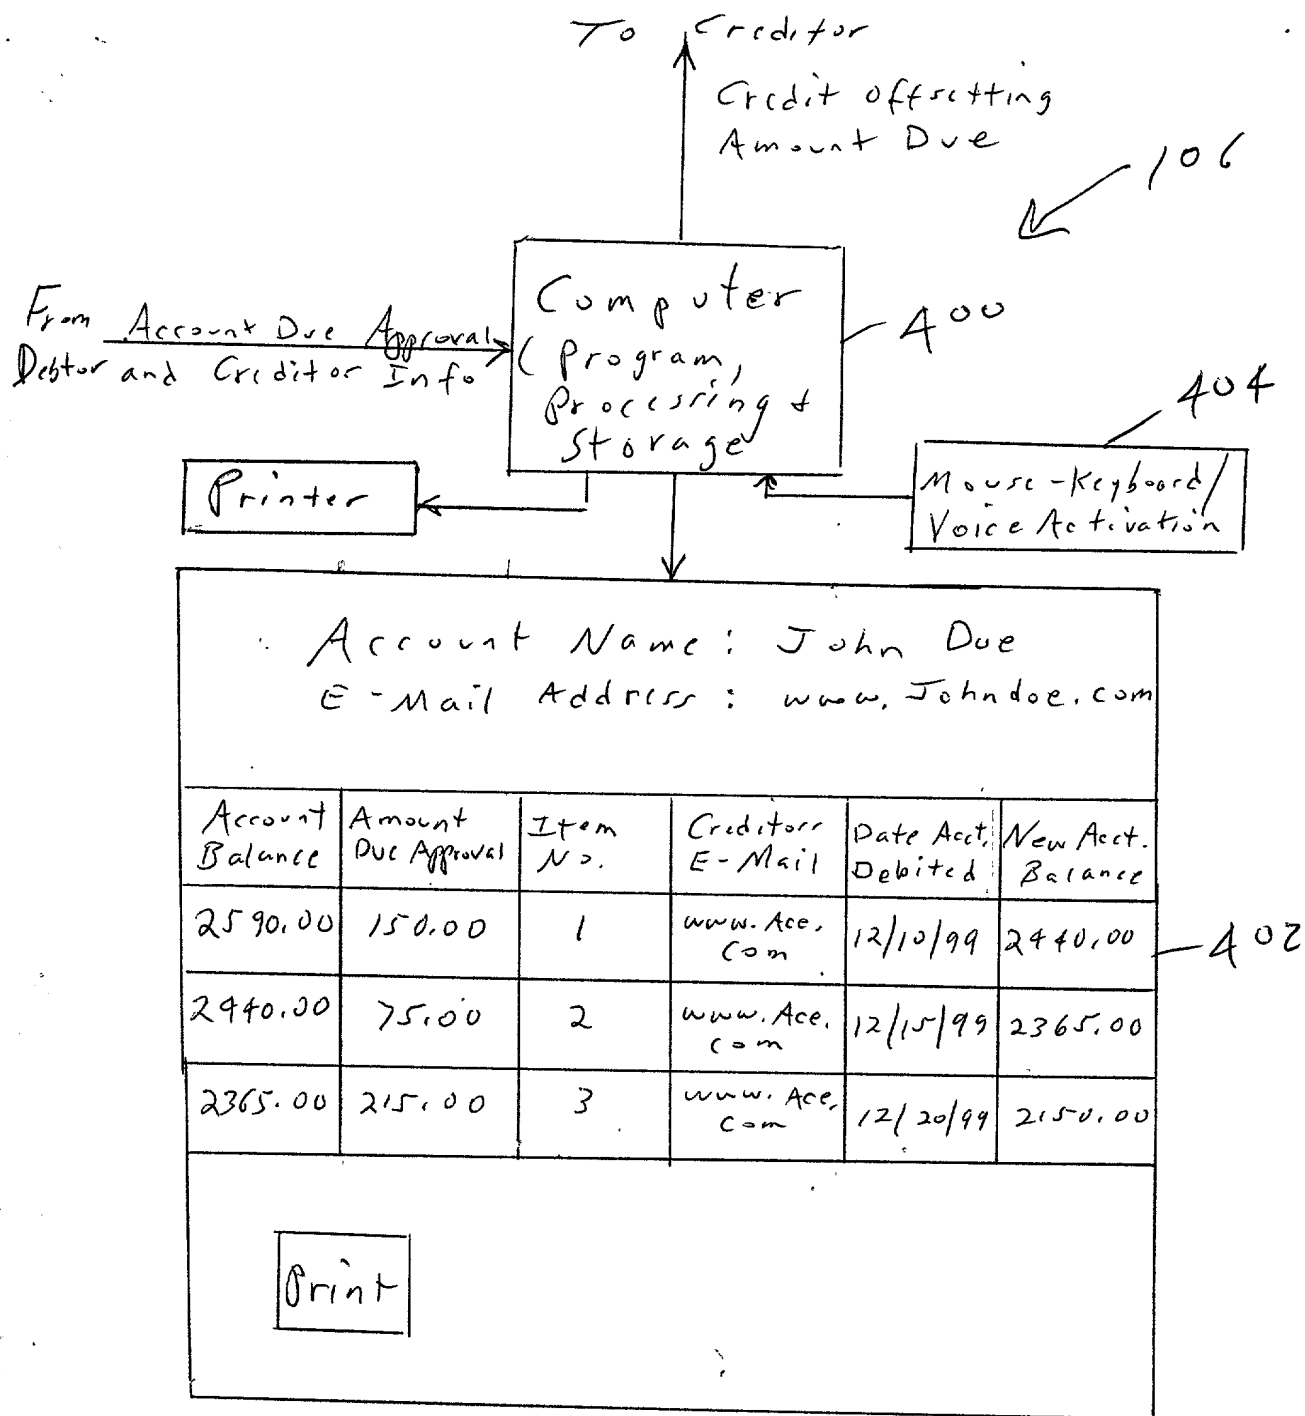 To Creditor
Credit Offsetting
Amount Due
106
Computer
(Program,
Processing &
Storage
400
From Account Due Approval
Debtor and Creditor Info
404
Printer
Mouse-Keyboard/
Voice Activation
Account Name: John Doe
E-Mail Address: www.Johndoe.com
Account Balance
Amount Due Approval
Item No.
Creditors E-Mail
Date Acct. Debited
New Acct. Balance
2590.00 150.00 1 www.Ace.com 12/10/99 2440.00
402
2440.00 75.00 2 www.Ace.com 12/15/99 2365.00
2365.00 215.00 3 www.Ace.com 12/20/99 2150.00
Print